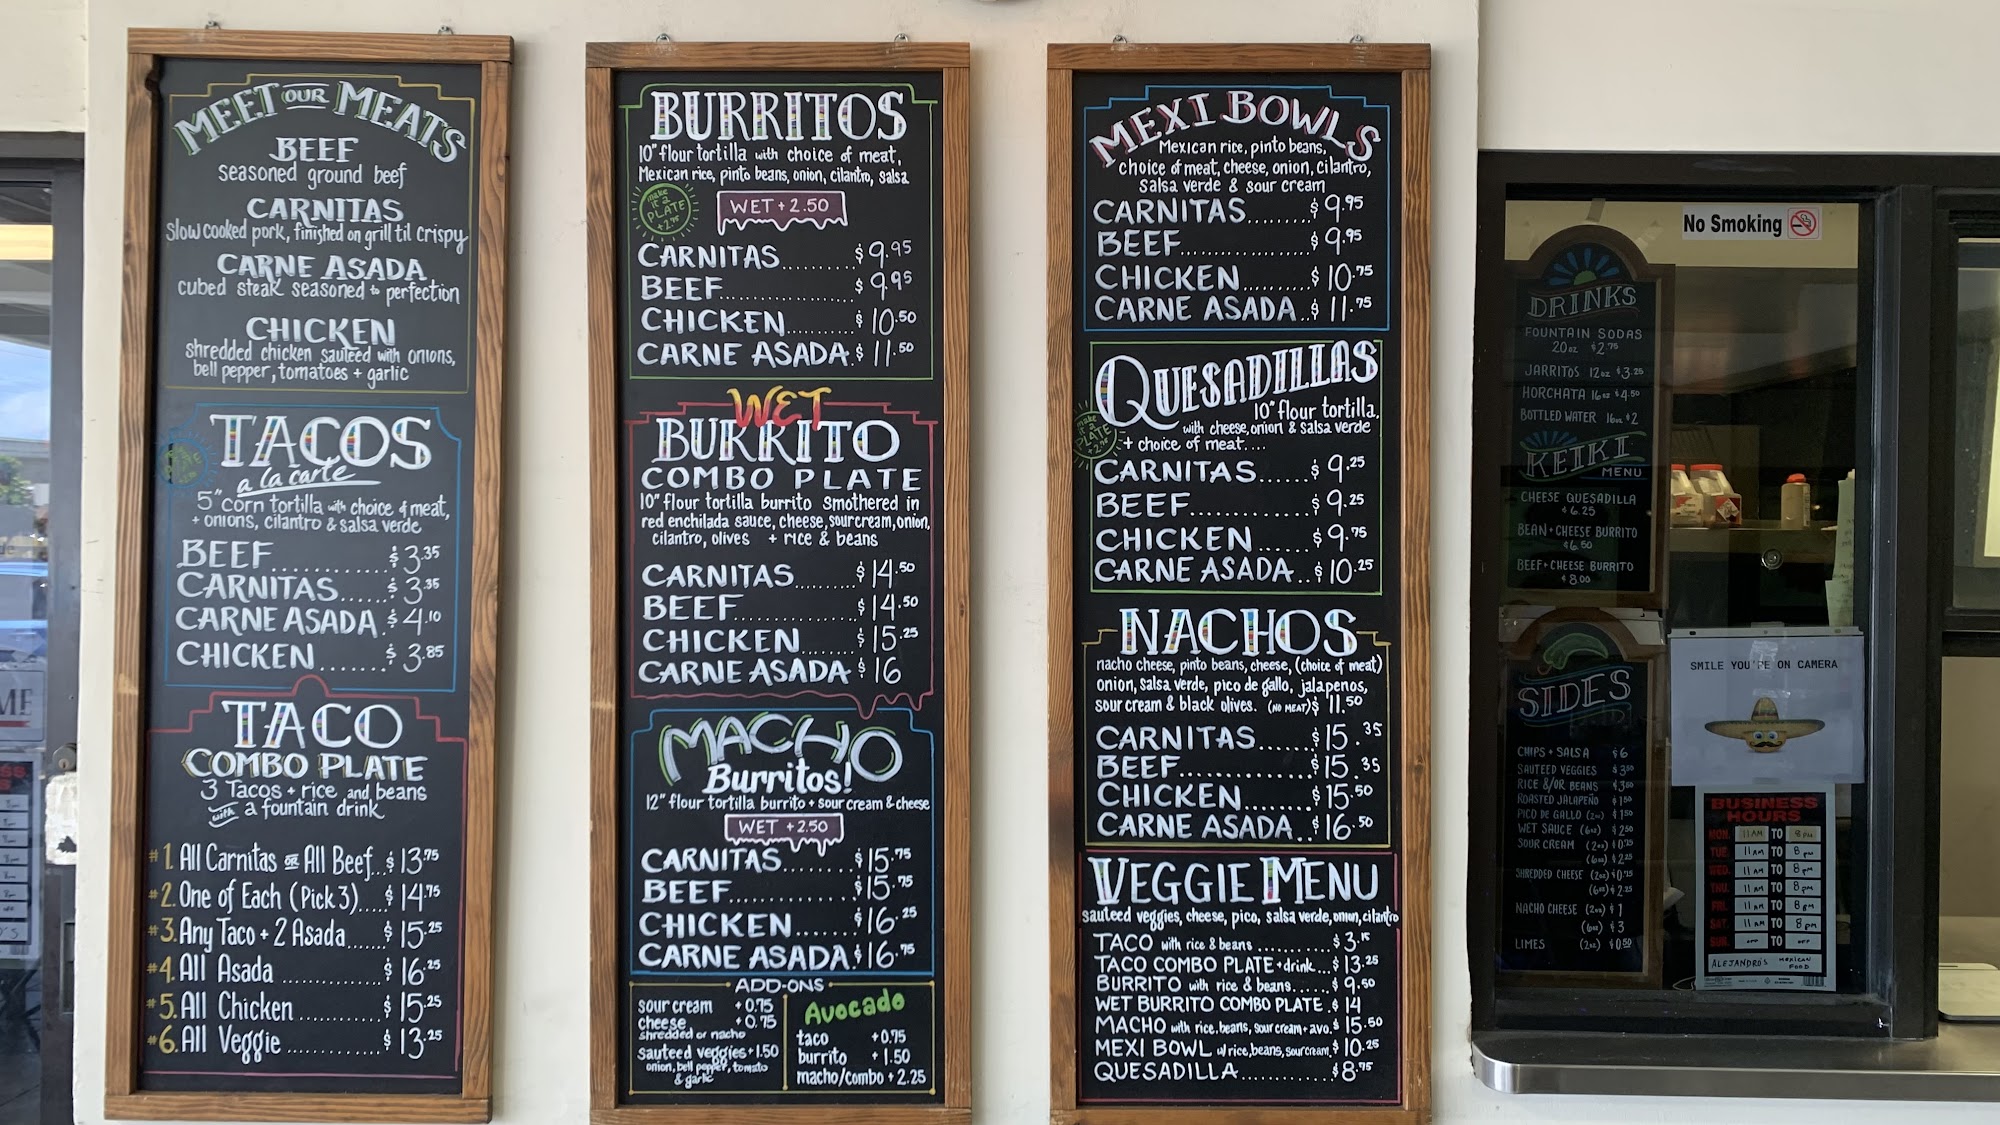 MEET OUR MEATS
BEEF
seasoned ground beef
CARNITAS
slow cooked pork, finished on grill til crispy
CARNE ASADA
cubed steak seasoned to perfection
CHICKEN
shredded chicken sauteed with onions,
bell pepper, tomatoes + garlic
TACOS
a la carte
5" corn tortilla with choice of meat,
+ onions, cilantro & salsa verde
BEEF............ $3.35
CARNITAS...... $3.35
CARNE ASADA. $4.10
CHICKEN....... $3.85
TACO
COMBO PLATE
3 Tacos + rice and beans
with a fountain drink
#1. All Carnitas OR All Beef... $13.75
#2. One of Each (Pick 3).... $14.75
#3. Any Taco + 2 Asada...... $15.25
#4. All Asada .............. $16.25
#5. All Chicken ............ $15.25
#6. All Veggie ............. $13.25
BURRITOS
10" flour tortilla with choice of meat,
Mexican rice, pinto beans, onion, cilantro, salsa
make it a PLATE +2.75
WET + 2.50
CARNITAS.......... $9.95
BEEF................ $9.95
CHICKEN.......... $10.50
CARNE ASADA. $11.50
WET
BURRITO
COMBO PLATE
10" flour tortilla burrito smothered in
red enchilada sauce, cheese, sour cream, onion,
cilantro, olives + rice & beans
CARNITAS........ $14.50
BEEF............... $14.50
CHICKEN........ $15.25
CARNE ASADA $16
MACHO
Burritos!
12" flour tortilla burrito + sour cream & cheese
WET +2.50
CARNITAS......... $15.75
BEEF................ $15.75
CHICKEN........ $16.25
CARNE ASADA. $16.75
ADD-ONS
sour cream +0.75
cheese +0.75
shredded or nacho
sauteed veggies +1.50
onion, bell pepper, tomato
& garlic
Avocado
taco +0.75
burrito +1.50
macho/combo +2.25
MEXI BOWLS
Mexican rice, pinto beans,
choice of meat, cheese, onion, cilantro,
salsa verde & sour cream
CARNITAS........ $9.95
BEEF................. $9.95
CHICKEN.......... $10.75
CARNE ASADA.. $11.75
QUESADILLAS
make it a PLATE +2.75
10" flour tortilla,
with cheese, onion & salsa verde
+ choice of meat....
CARNITAS....... $9.25
BEEF.............. $9.25
CHICKEN...... $9.75
CARNE ASADA.. $10.25
NACHOS
nacho cheese, pinto beans, cheese, (choice of meat)
onion, salsa verde, pico de gallo, jalapenos,
sour cream & black olives. (NO MEAT) $11.50
CARNITAS....... $15.35
BEEF................ $15.35
CHICKEN......... $15.50
CARNE ASADA.. $16.50
VEGGIE MENU
sauteed veggies, cheese, pico, salsa verde, onion, cilantro
TACO with rice & beans ........... $3.15
TACO COMBO PLATE + drink... $13.25
BURRITO with rice & beans....... $9.50
WET BURRITO COMBO PLATE. $14
MACHO with rice, beans, sour cream + avo. $15.50
MEXI BOWL w/ rice, beans, sour cream. $10.25
QUESADILLA.............. $8.75
No Smoking
DRINKS
FOUNTAIN SODAS
20oz $2.75
JARRITOS 12oz $3.25
HORCHATA 16oz $4.50
BOTTLED WATER 16oz $2
KEIKI
MENU
CHEESE QUESADILLA
$6.25
BEAN + CHEESE BURRITO
$6.50
BEEF + CHEESE BURRITO
$8.00
SIDES
CHIPS + SALSA $6
SAUTEED VEGGIES $3.50
RICE &/OR BEANS $3.50
ROASTED JALAPEÑO $1.50
PICO DE GALLO (2oz) $1.50
WET SAUCE (6oz) $2.50
SOUR CREAM (2oz) $0.75
(6oz) $2.25
SHREDDED CHEESE (2oz) $0.75
(6oz) $2.25
NACHO CHEESE (2oz) $1
(6oz) $3
LIMES (2oz) $0.50
SMILE YOU'RE ON CAMERA
BUSINESS
HOURS
MON. 11AM TO 8PM
TUE. 11AM TO 8PM
WED. 11AM TO 8PM
THU. 11AM TO 8PM
FRI. 11AM TO 8PM
SAT. 11AM TO 8PM
SUN. OFF TO OFF
ALEJANDRO'S MEXICAN FOOD